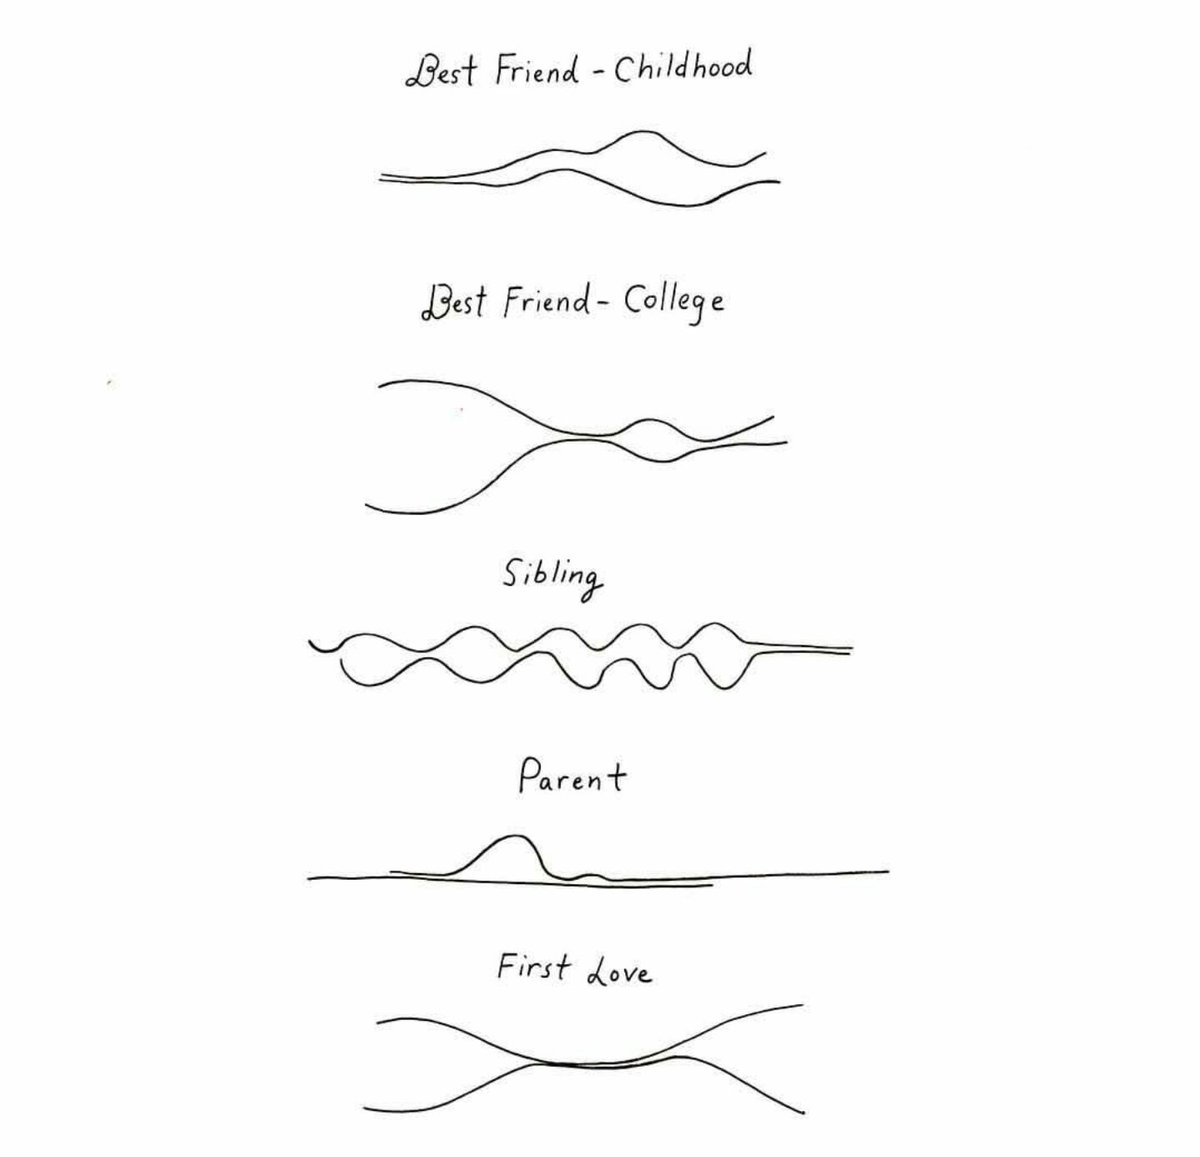 Best Friend - Childhood
Best Friend - College
Sibling
Parent
First Love